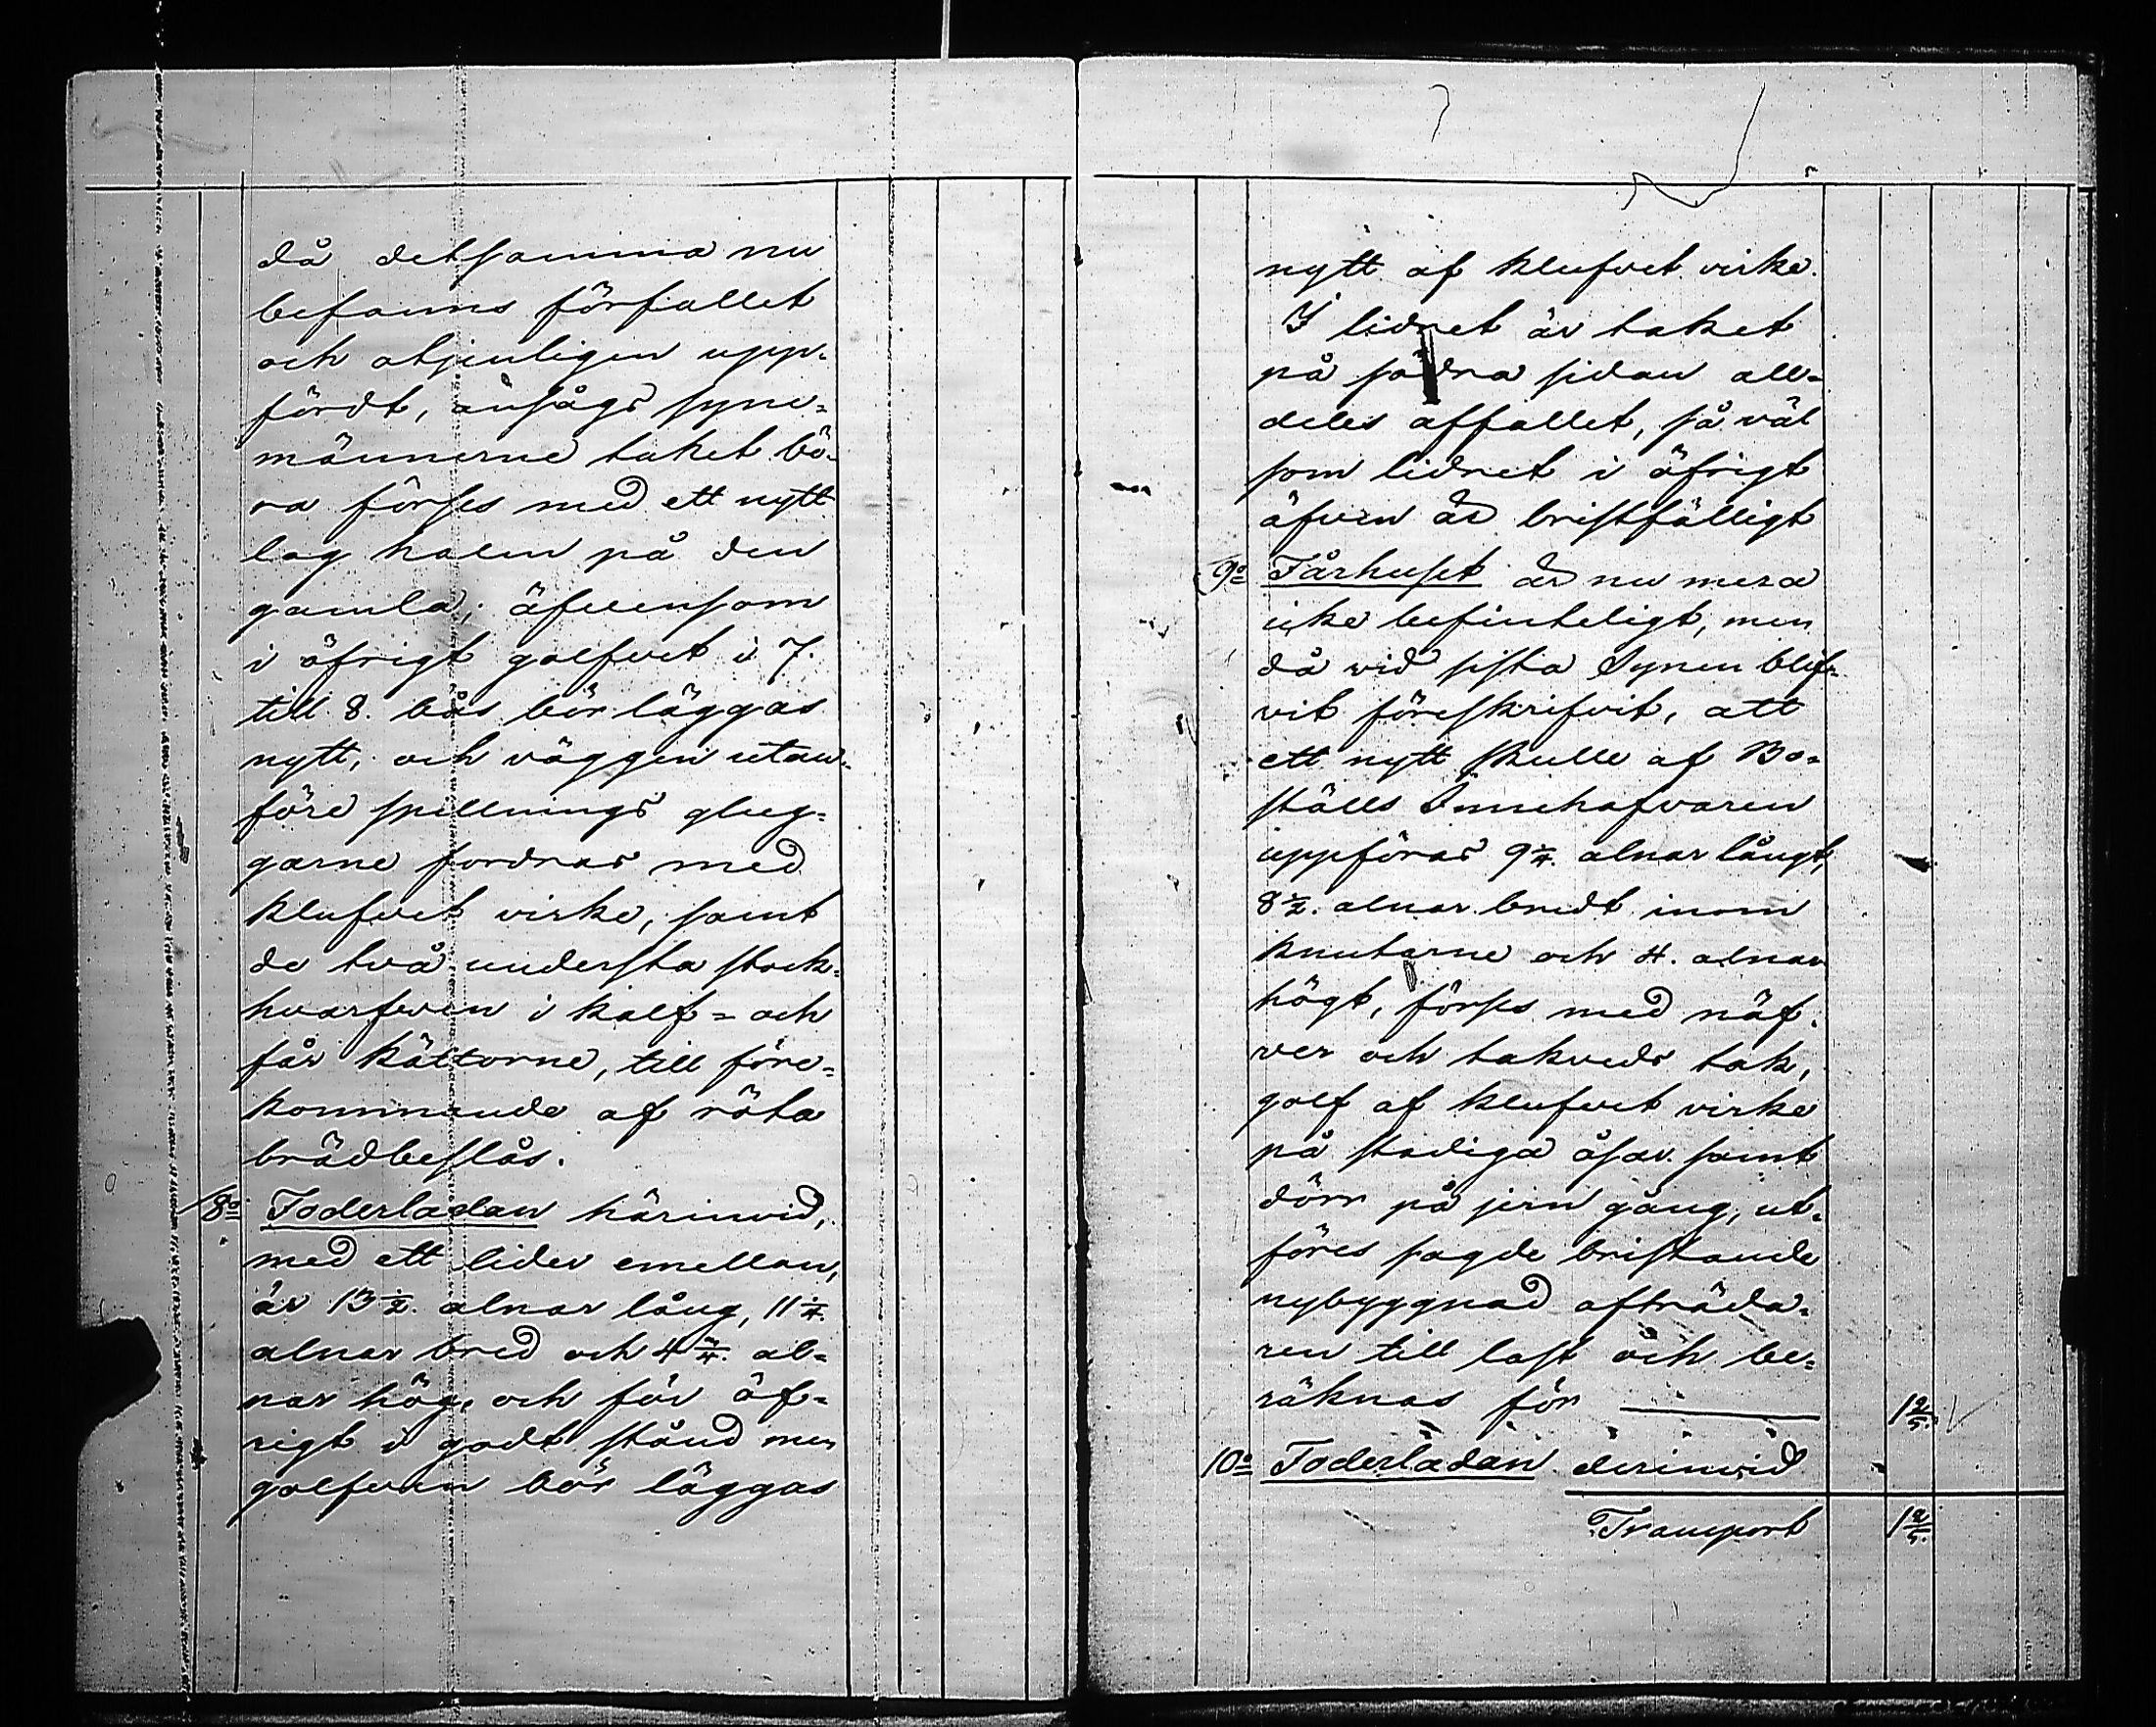 då detsamma nu
befanns förfallet
och otjenligen upp-
fördt, ansågs syne-
männerne taket bö-
ra förses med ett nytt
lag halm på den
gamla; äfvensom
i öfrigt golfvet i 7.
till 8. bås bör läggas
nytt, och väggen utan-
före spillnings glug-
garne fordras med
klufvet virke, samt
de två understa stock-
hvarfven i kalf- och
får kättorne, till före-
kommande af röta
brädbeslås.
8º Foderladan härinvid,
med ett lider emellan,
är 13 1/2. alnar lång, 11 1/4.
alnar bred och 4 3/4. al-
nar hög, och för öf-
rigt i godt stånd men
golfven bör läggas
nytt af klufvet virke.
I lidret är taket
på södra sidan all-
deles affallet, så väl
som lidret i öfrigt
äfven är bristfälligt
9º Fårhuset är nu mera
icke befinteligt, men
då vid sista Synen blif-
vit föreskrifvit, att
ett nytt skulle af Bo-
ställs Innehafvaren
uppföras 9 1/4. alnar långt,
8 1/2. alnar bredt inom
knutarne och 4. alnar
högt, förses med näf-
ver och takveds tak,
golf af klufvet virke
på stadiga åsar samt
dörr på jern gång, ut-
föres sagde bristande
nybyggnad afträda-
ren till last och be-
räknas för ——— 12
10º Foderladan derinvid
Transport 12